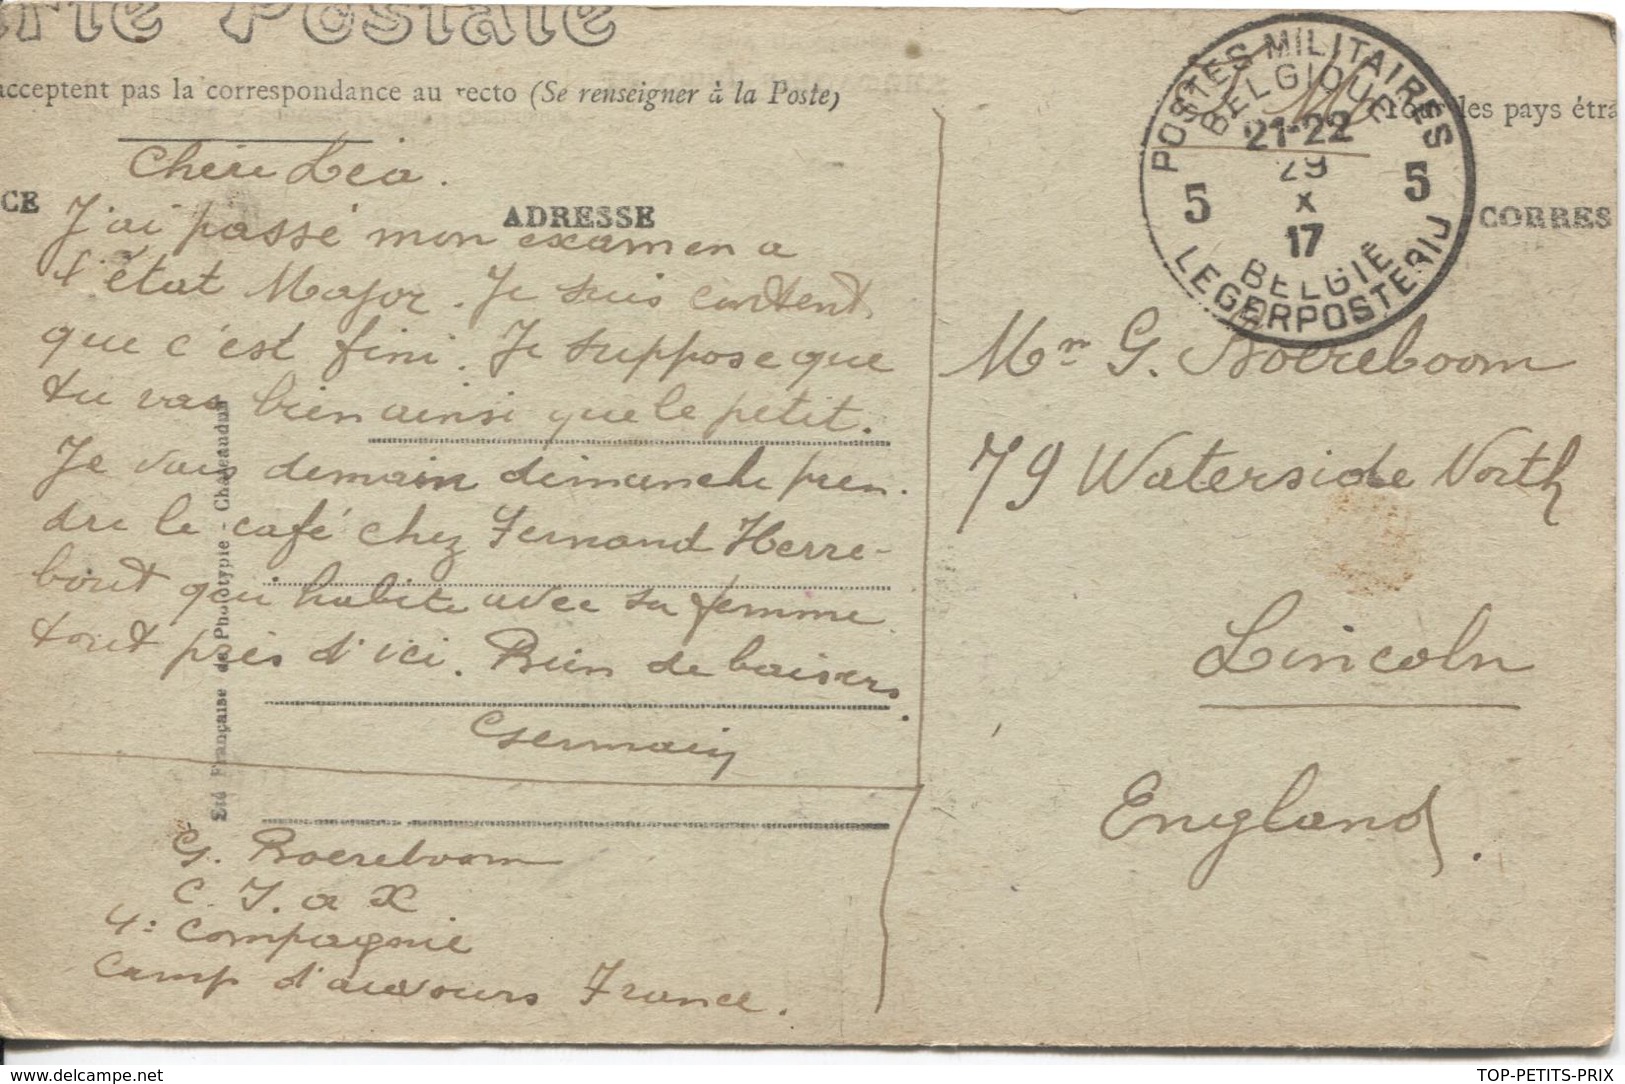 rte Postale
acceptent pas la correspondance au recto (Se renseigner à la Poste)
Tous les pays étra
CE
ADRESSE
CORRES
POSTES MILITAIRES
BELGIQUE
21-22
29
X
17
5 5
BELGIË
LEGERPOSTERIJ
S. M.
Chère Léa.
J'ai passé mon examen a
l'état Major. Je suis content
que c'est fini. Je suppose que
tu vas bien ainsi que le petit.
Je vais demain dimanche pren-
dre le café chez Fernand Herre-
bout qui habite avec sa femme
tout près d'ici. Bien de baisers.
Germain
G. Boereboom
C. I. a X
4e Compagnie
Camp d'auvours France.
Mm G. Boereboom
79 Waterside North
Lincoln
England.
Sté Française de Phototypie - Châteaudun
TOP-PETITS-PRIX